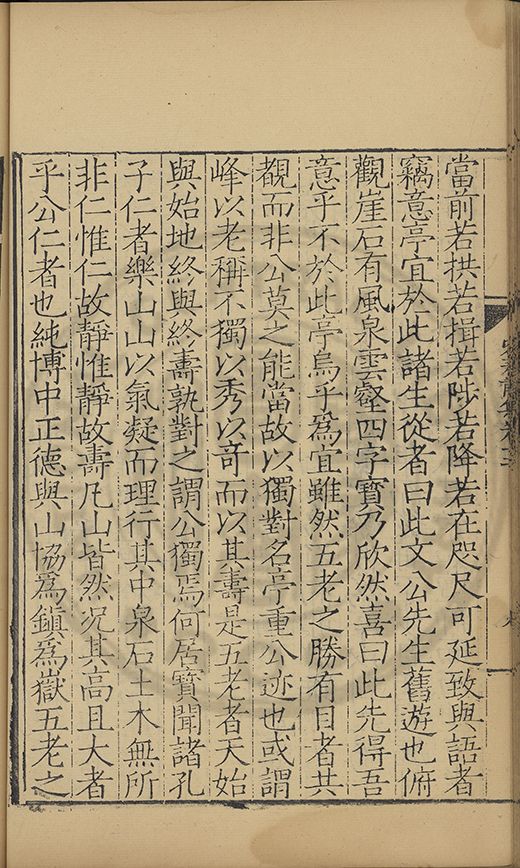 當前若拱若揖若陟若降若在咫尺可延致與語者
竊意亭宜於此諸生從者曰此文公先生舊遊也俯
觀崖石有風泉雲壑四字寶乃欣然喜曰此先得吾
意乎不於此亭烏乎爲宜雖然五老之勝有目者共
覩而非公莫之能當故以獨對名亭重公迹也或謂
峰以老稱不獨以秀以奇而以其壽是五老者天始
與始地終與終壽孰對之謂公獨焉何居寶聞諸孔
子仁者樂山山以氣凝而理行其中泉石土木無所
非仁惟仁故靜惟靜故壽凡山皆然况其高且大者
乎公仁者也純博中正德與山協爲鎮爲嶽五老之